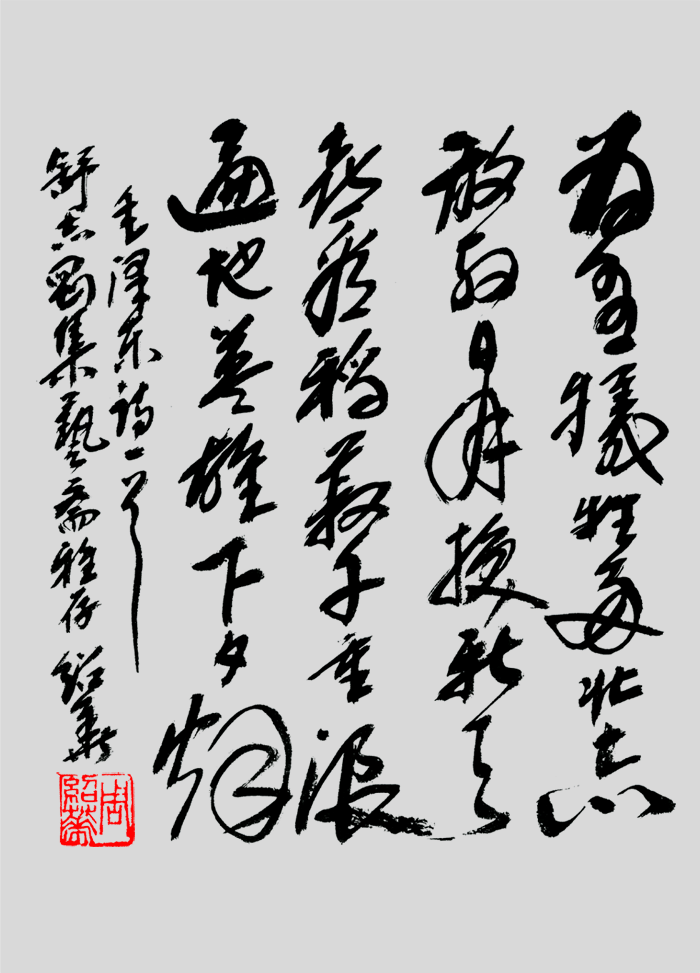 为有犧牲多壮志
敢教日月换新天
喜看稻菽千重浪
遍地英雄下夕烟
毛泽东诗一首
舒志剛集藝斋雅存 绍華
周紹華